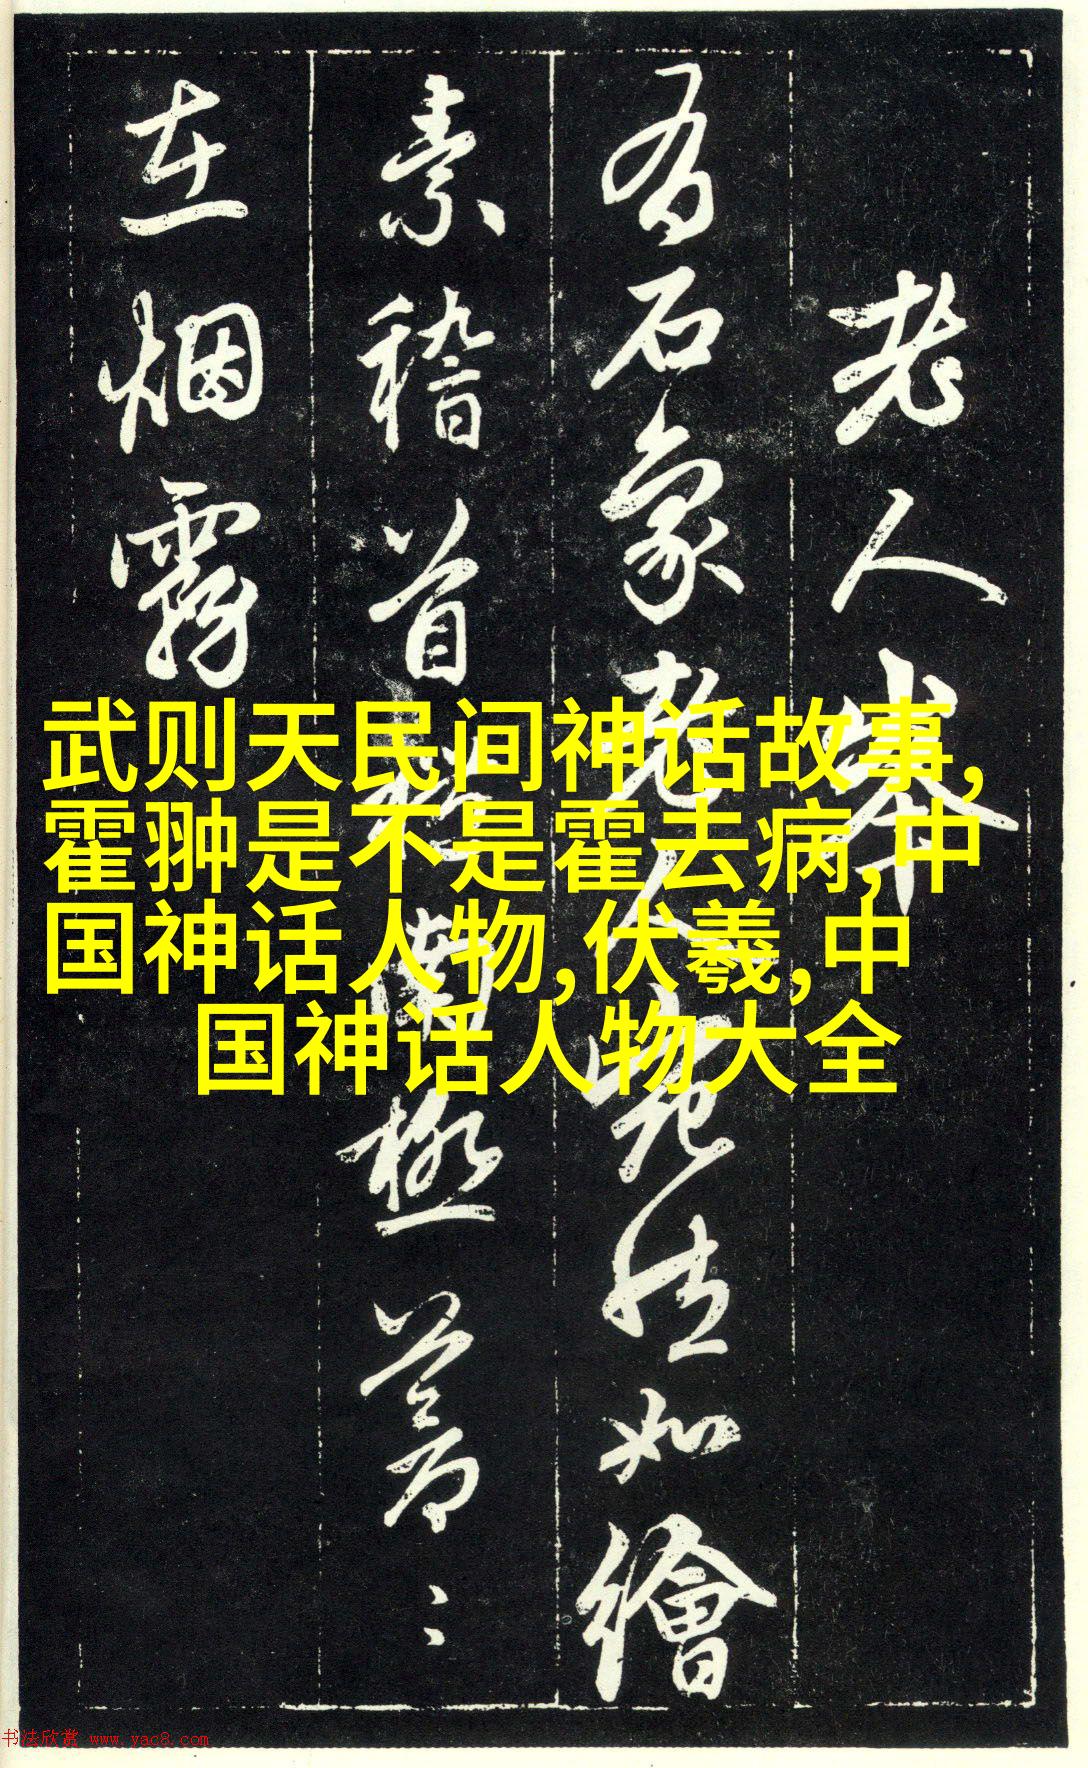 老人峯
有石象老人宛然如繪
素稽首祝南極蒼〻
在烟霧
武则天民间神话故事,
霍翀是不是霍去病,中
国神话人物,伏羲,中
国神话人物大全
书法欣赏 www.yac8.com